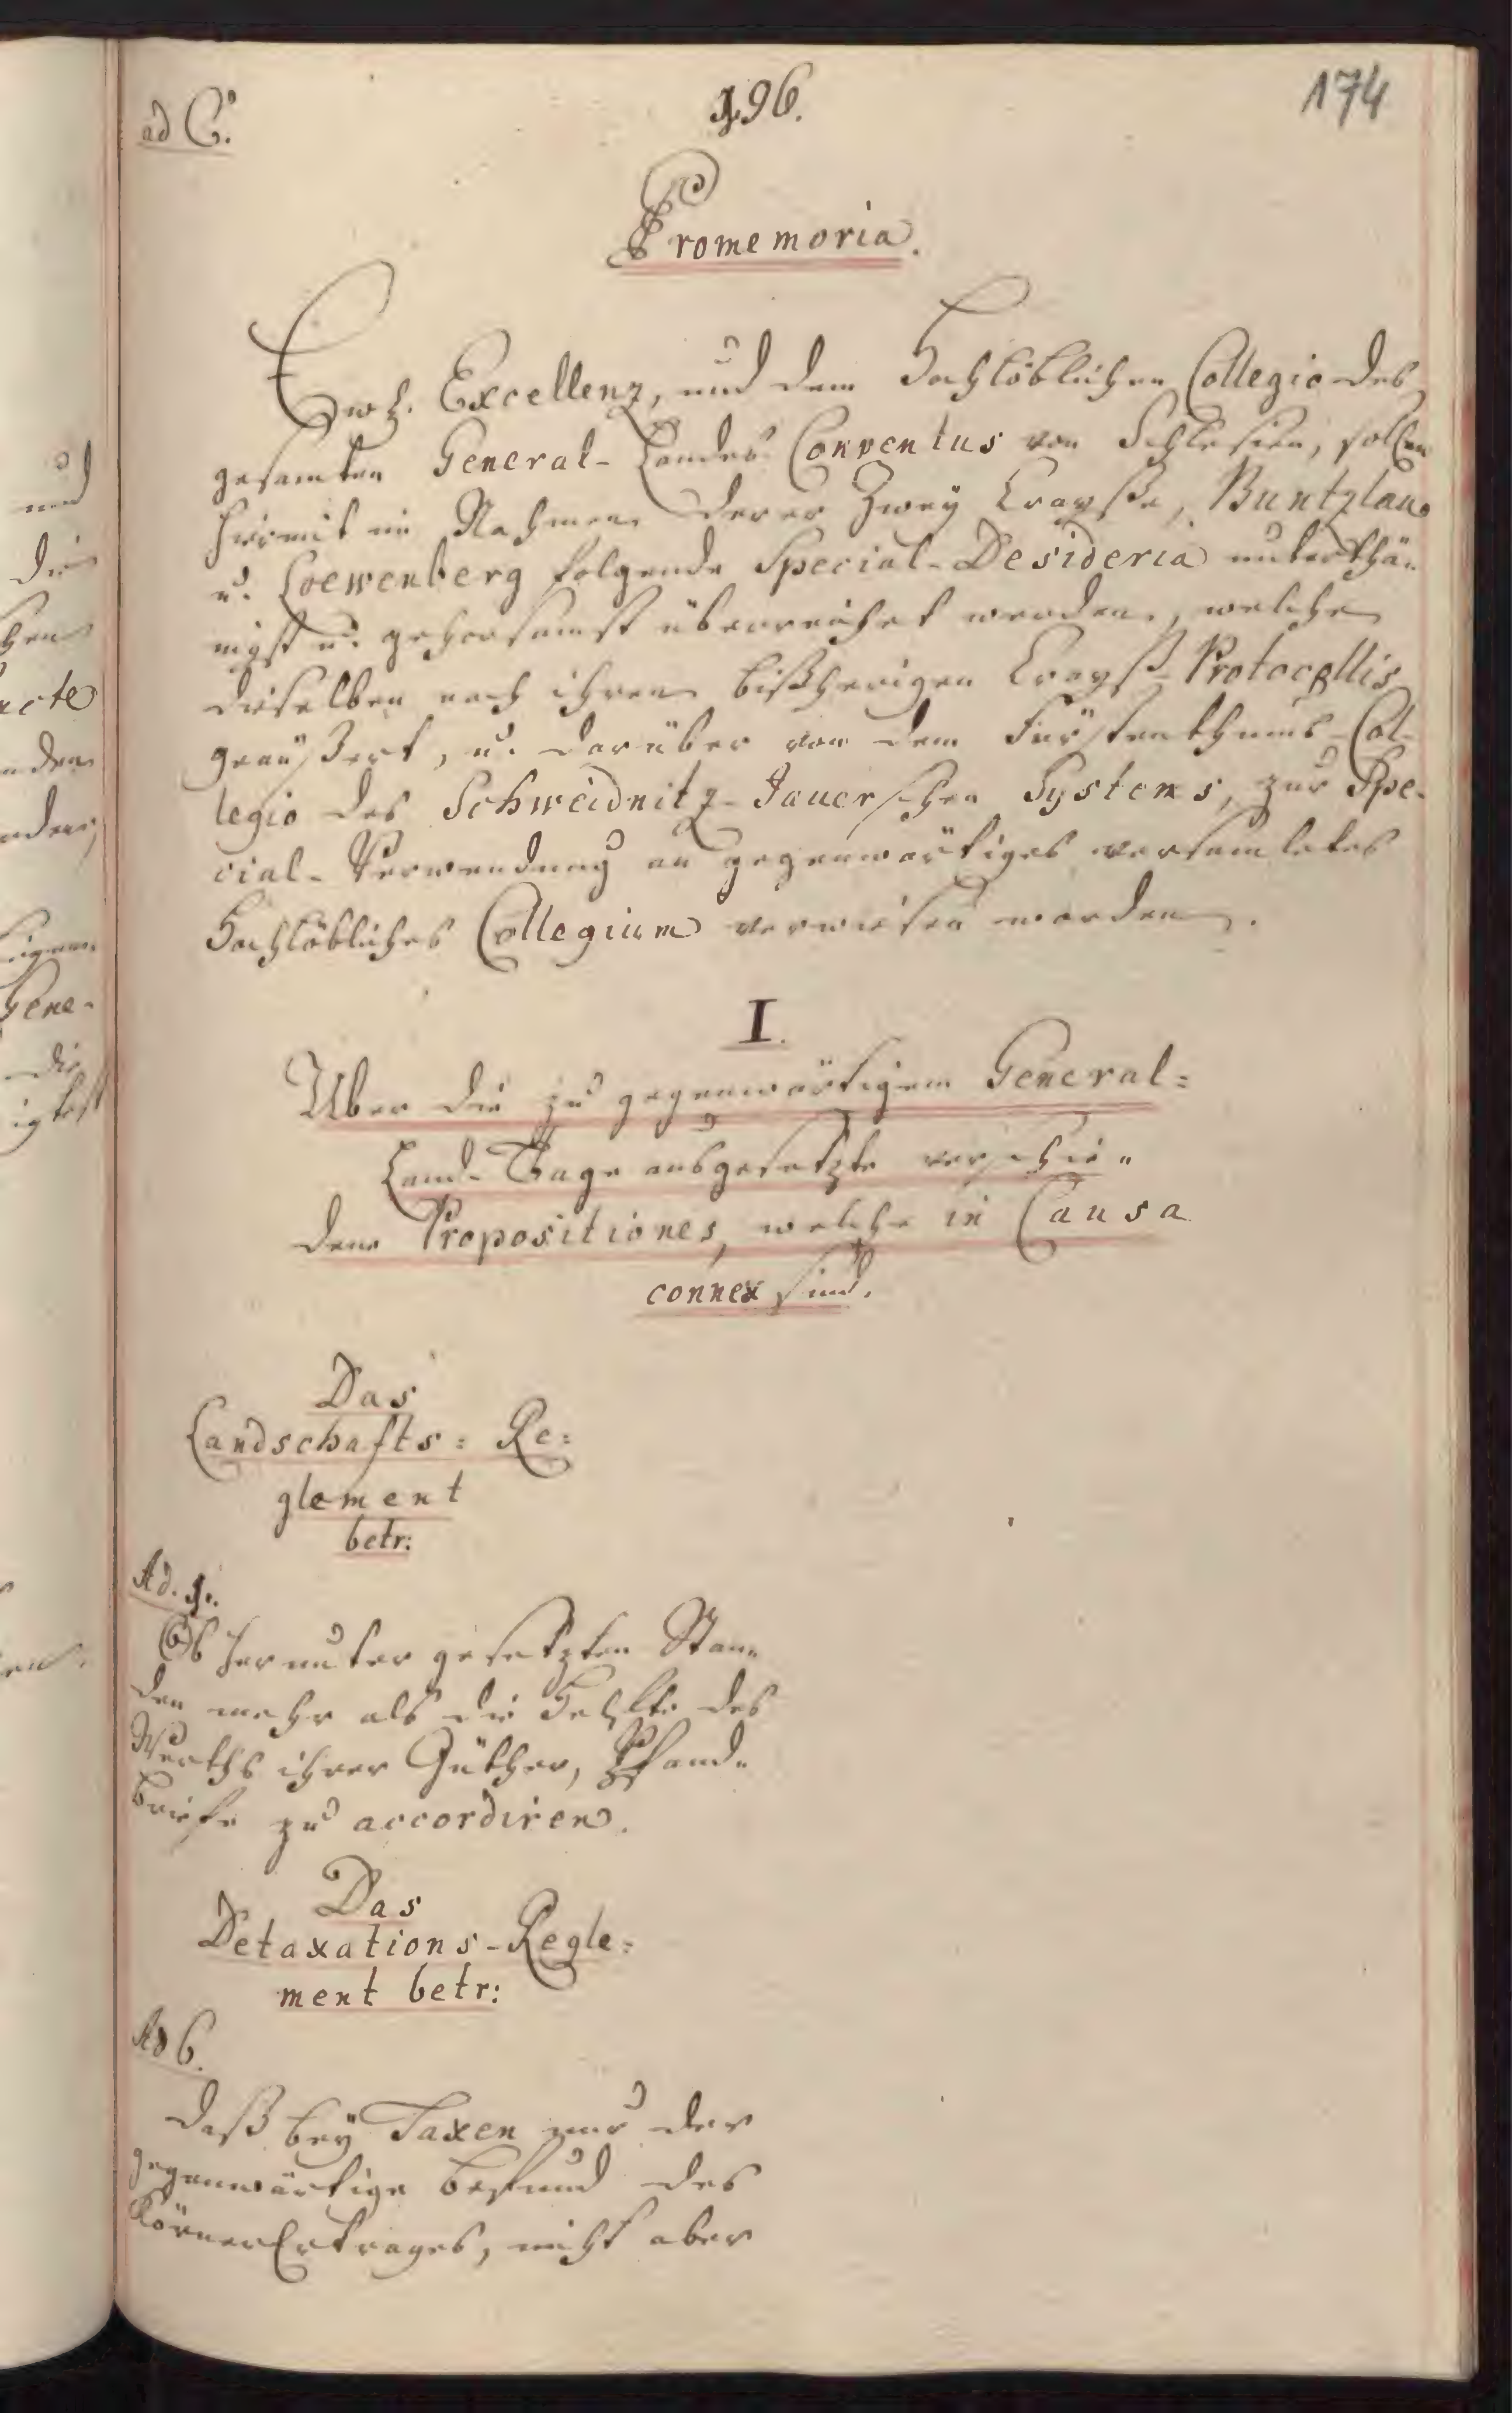 ad C.
196.
174
Promemoria.
Ewh. Excellenz, und dem Hochlöblichen Collegio des
gesamten General-Landes Conventus von Schlesien, sollen
hiermit im Nahmen derer Zwey Crayße, Buntzlau
u. Loewenberg folgende Special-Desideria unterthä-
nigst u. gehorsamst überreichet werden, welche
dieselben nach ihren bißherigen Crayß-Protocollis
geäußert, u. darüber von dem Fürstenthums-Col-
legio des Schweidnitz-Jauerschen Systems, zur Spe-
cial-Verwendung an gegenwärtiges versamletes
Hochlöbliches Collegium verwiesen worden.
I.
Über die zu gegenwärtigem General-
Land-Tage ausgesetzte verschie-
dene Propositiones, welche in Causa
connex sind.
Das
Landschafts-Re-
glement
betr:
Ad. 1.
Ob herunter gesetzten Stän-
den mehr als die Helfte des
Werths ihrer Güther, Pfand-
briefe zu accordiren.
Das
Detaxations-Regle-
ment betr:
Ad 6.
Daß bey Taxen nur der
gegenwärtige Befund des
KörnerErtrages, nicht aber
und
die
hen
acte
nden
Gene-
die